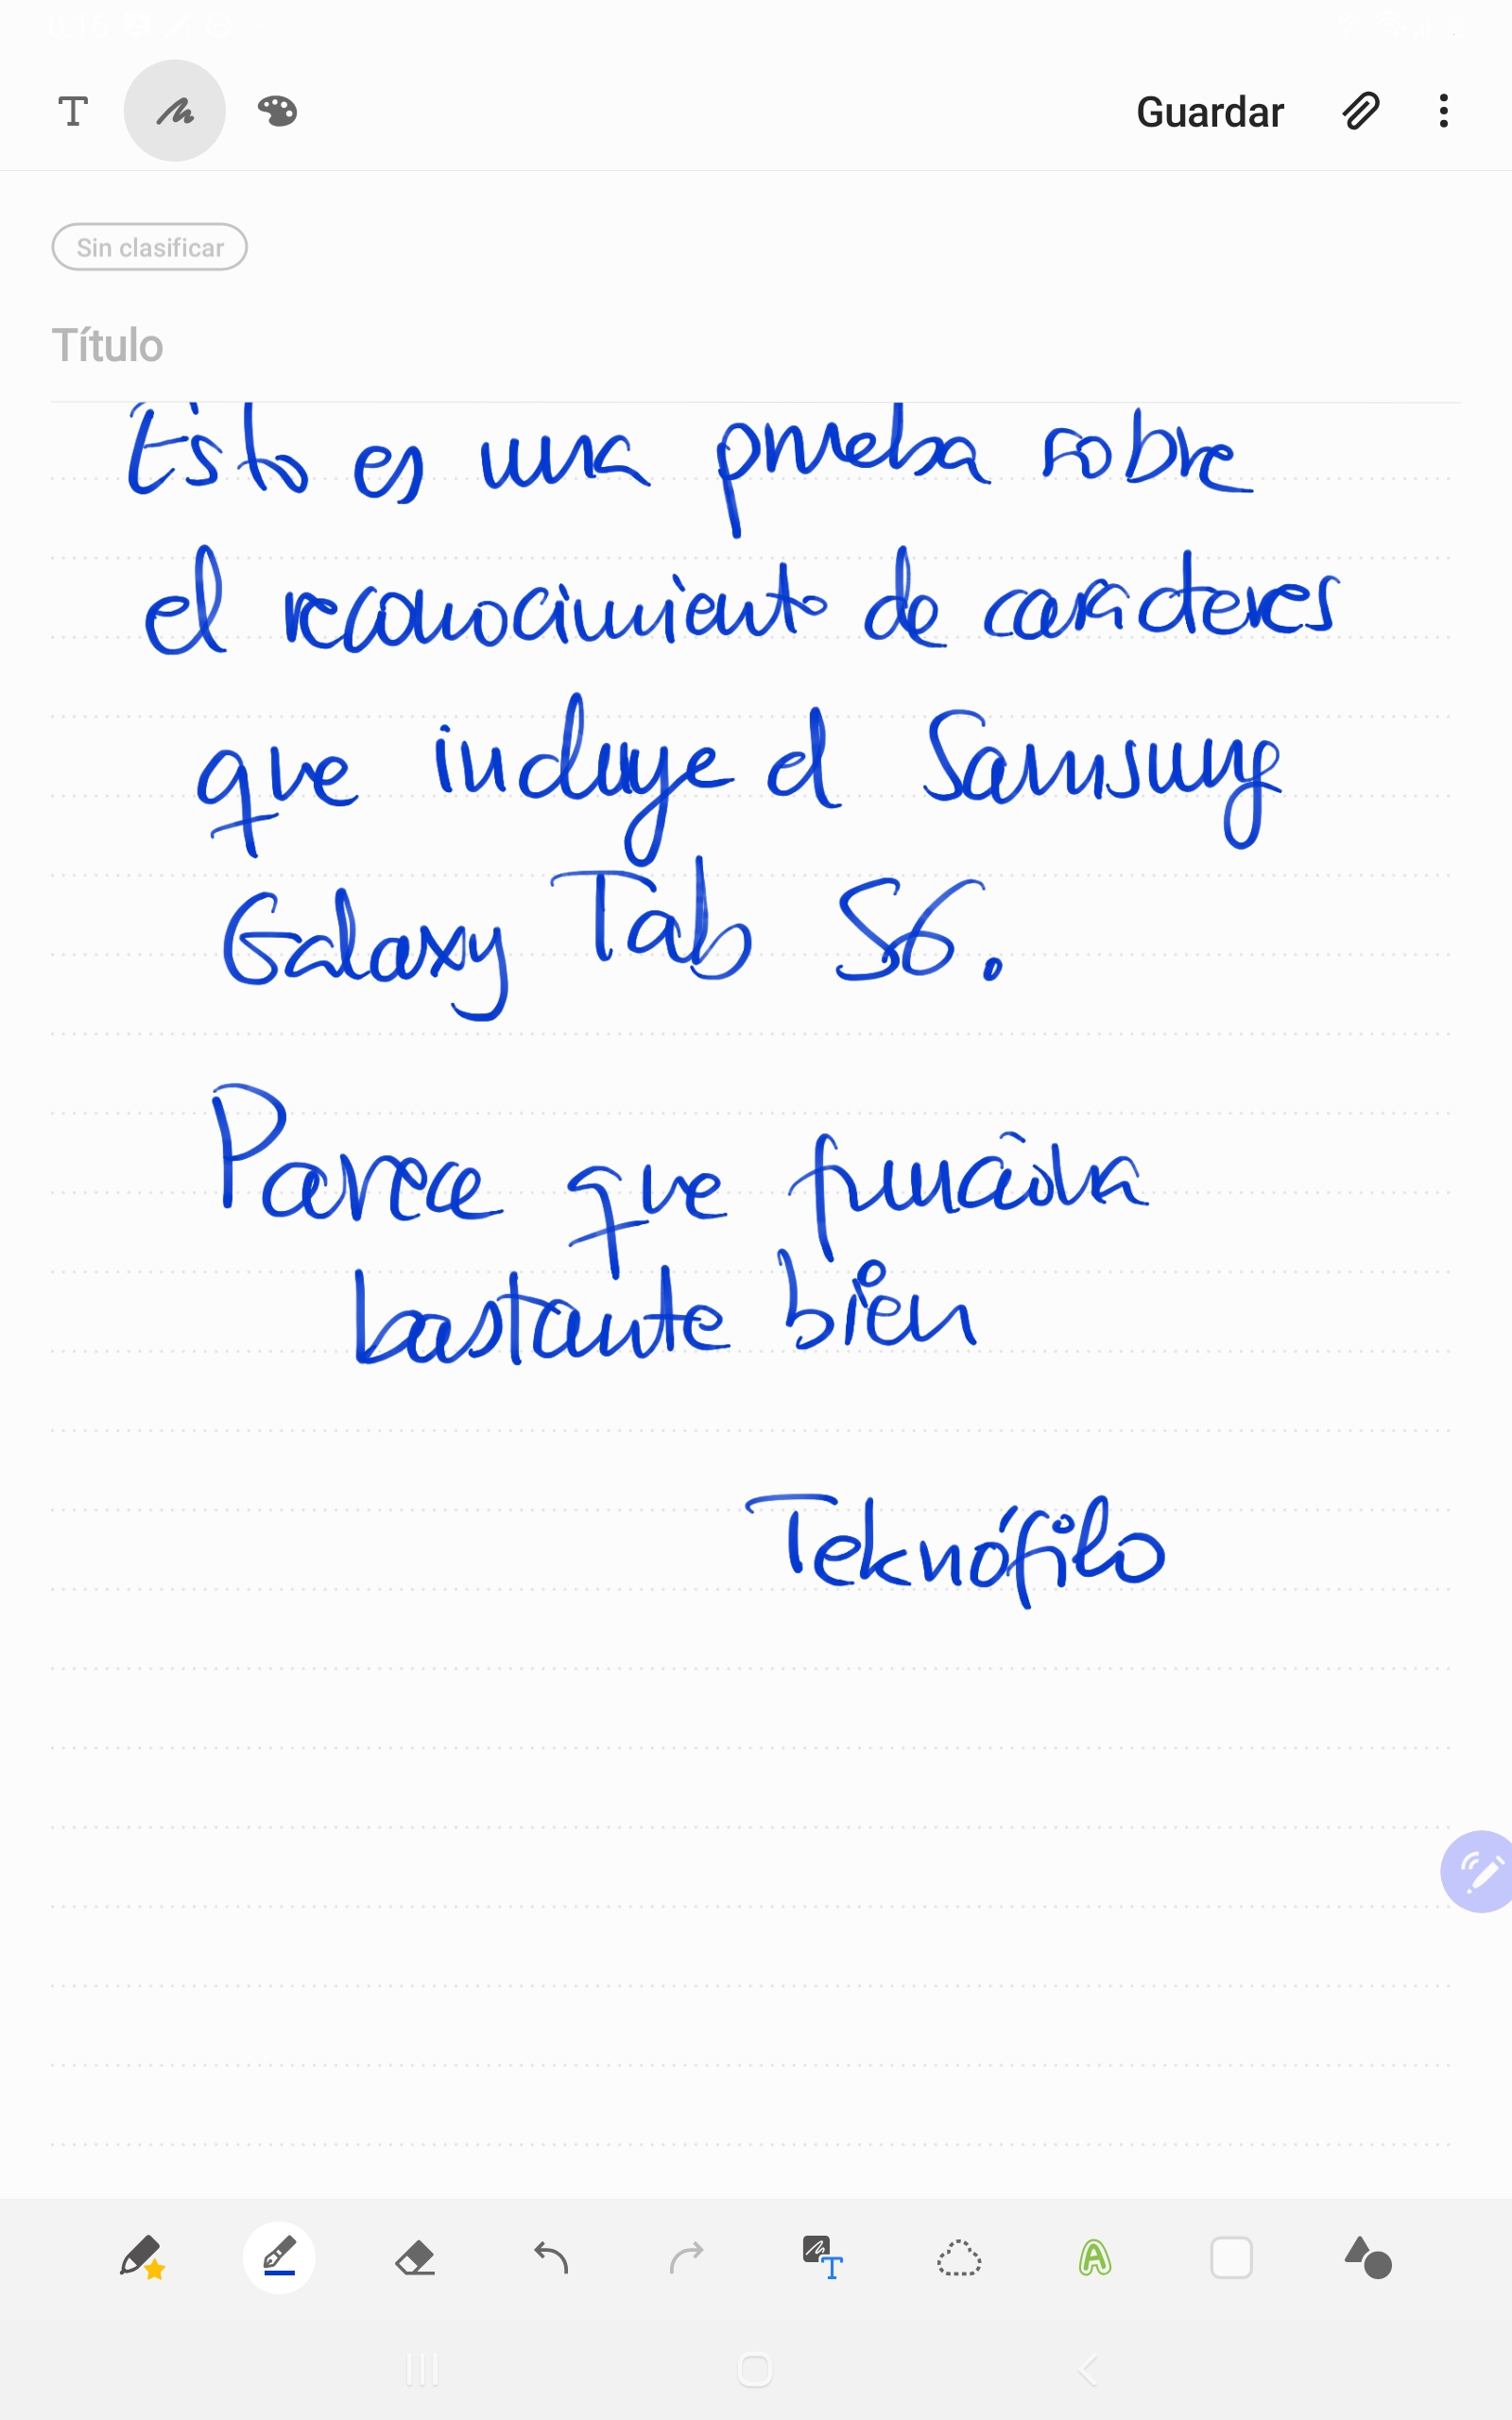 8:16
Guardar
Sin clasificar
Título
Esto es una prueba sobre
el reconocimiento de caracteres
que incluye el Samsung
Galaxy Tab S6.
Parece que funciona
bastante bien
Teknófilo